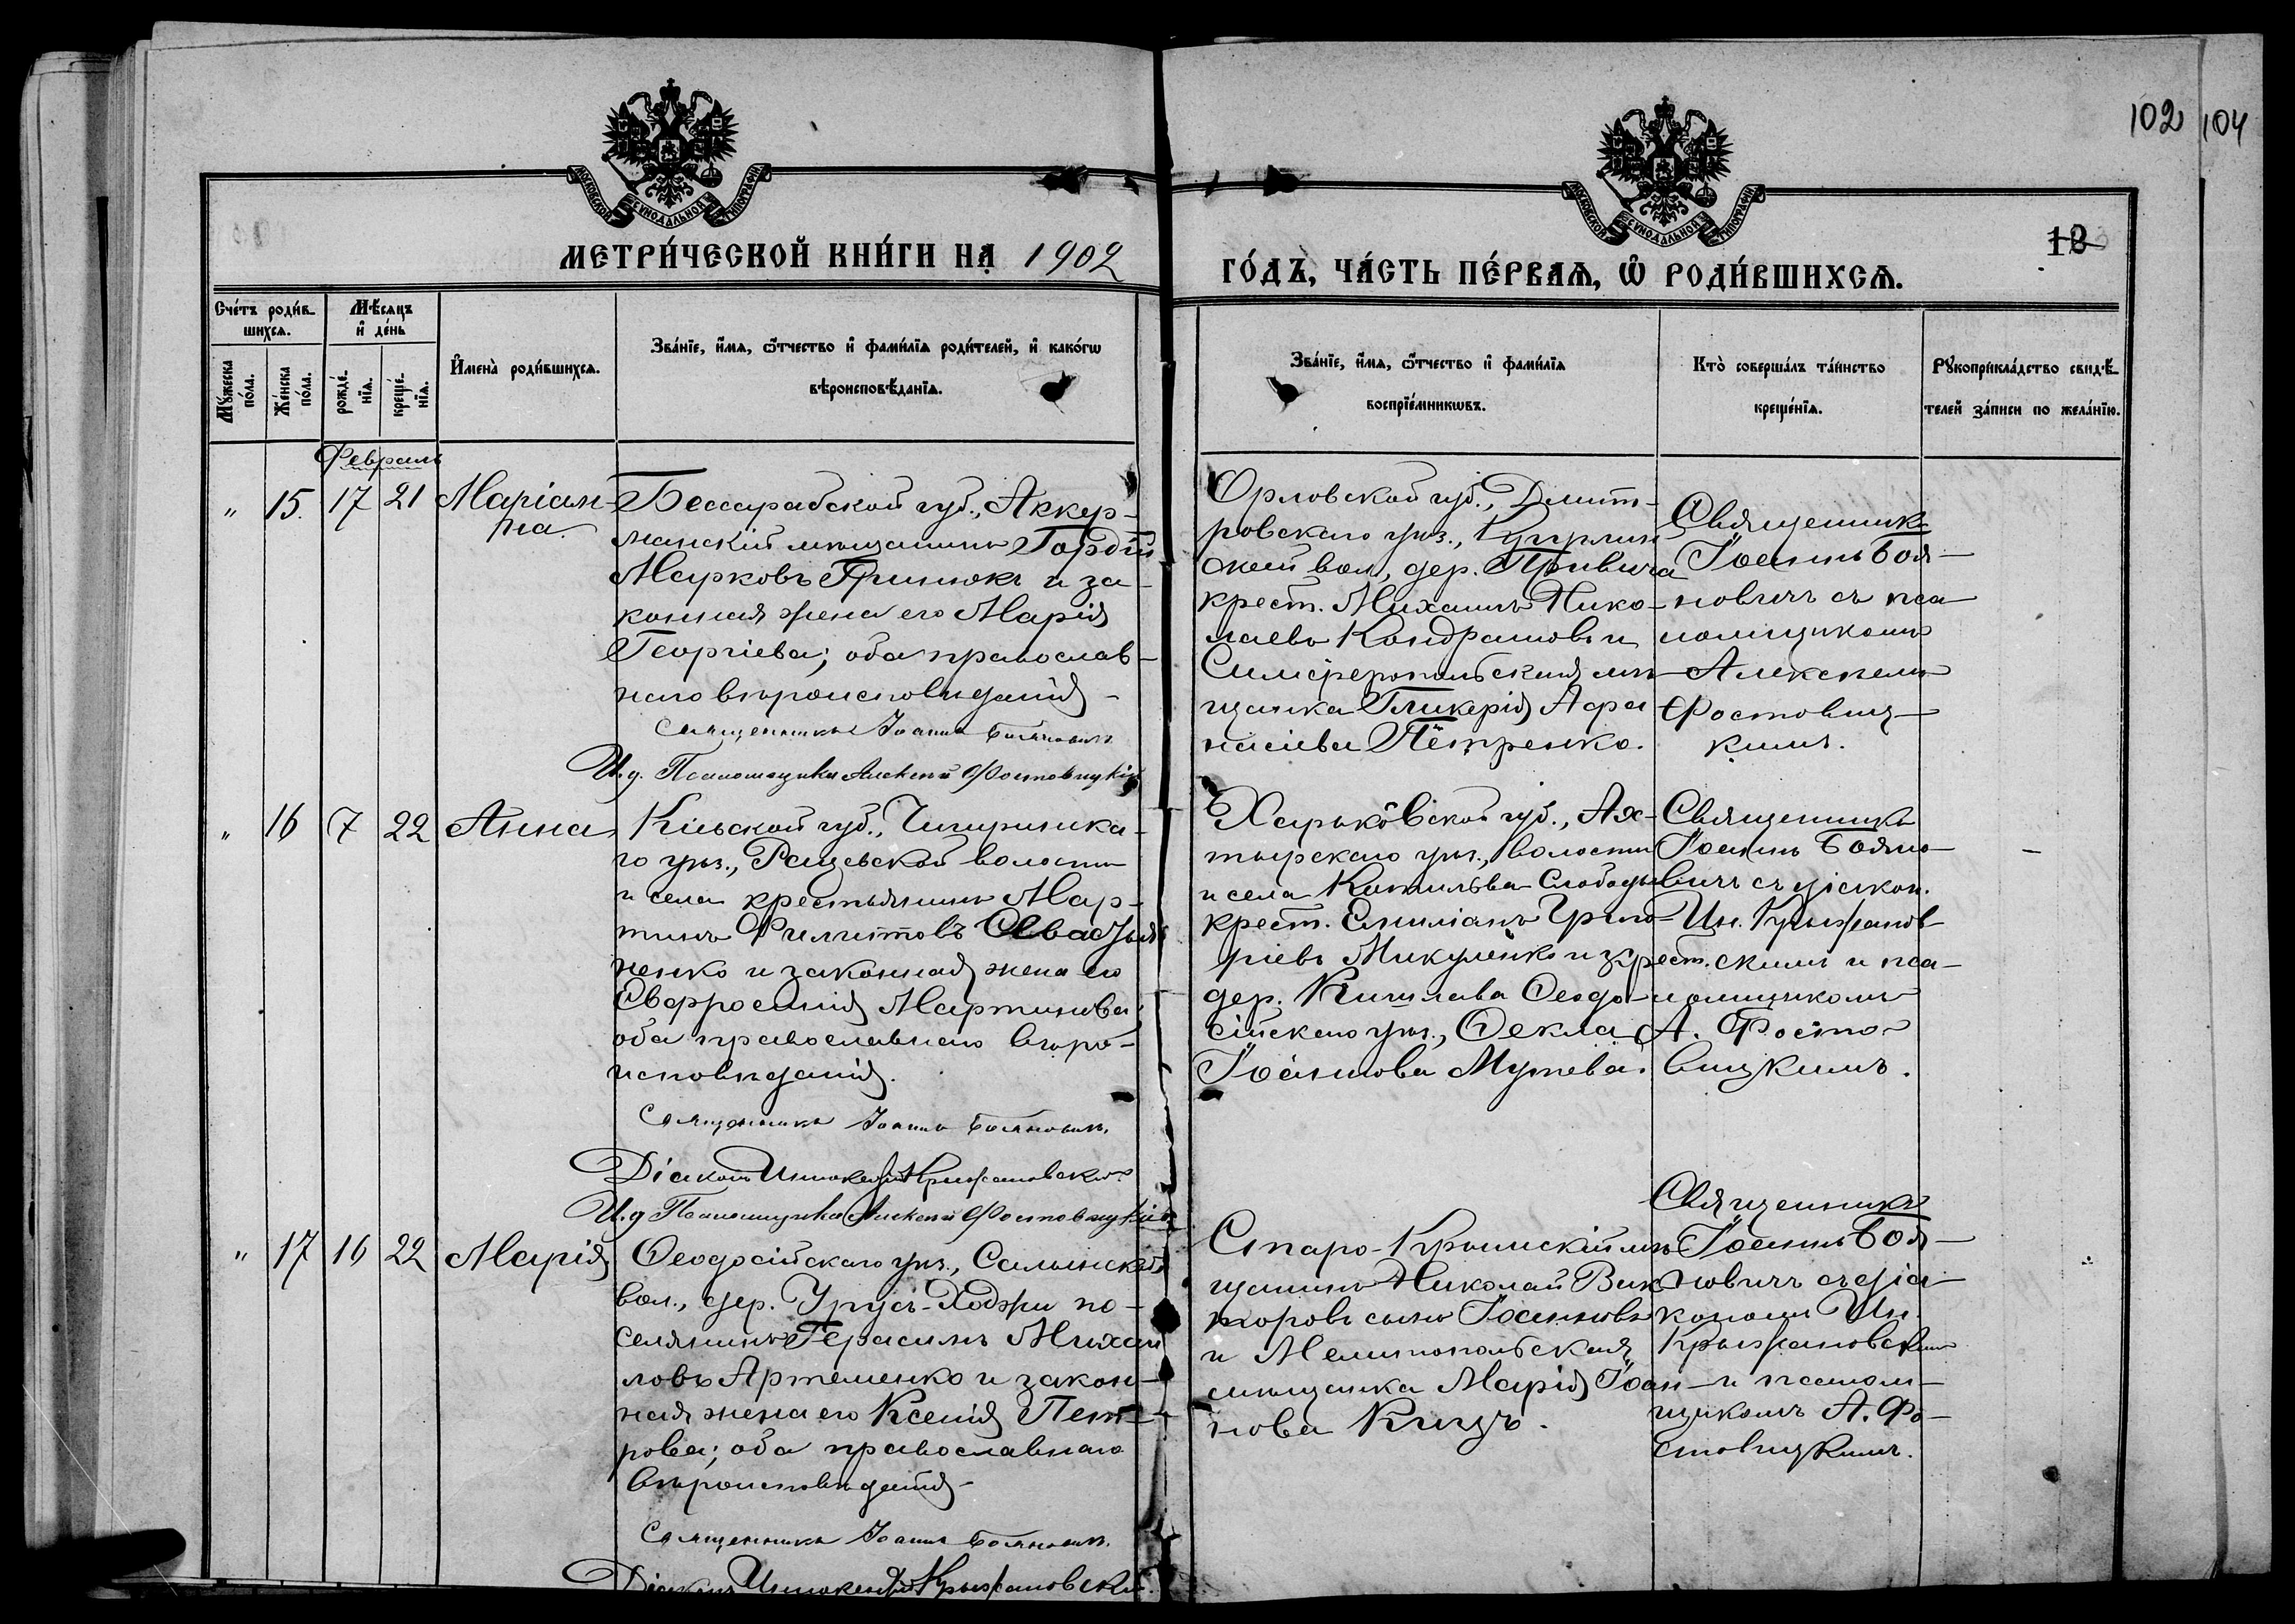 102 104
МОСКОВСКОЙ СѴНОДАЛЬНОЙ ТИПОГРАФІИ
МОСКОВСКОЙ СѴНОДАЛЬНОЙ ТИПОГРАФІИ
МЕТРИ́ЧЕСКОЙ КНИ́ГИ НА 1902
ГО́ДЪ, ЧА́СТЬ ПЕ́РВАѦ, Ѿ РОДИ́ВШИХСѦ.
Сче́тъ роди́в-
шихсѧ.
Мѣ́сѧцъ
и҆ де́нь
Мꙋ́жеска
по́ла.
Же́нска
по́ла.
рожде́-
нїѧ.
креще́-
нїѧ.
И҆мена̀ роди́вшихсѧ.
Зва́нїе, и҆́мѧ, ѻ҆́тчество и҆ фами́лїѧ роди́телей, и҆ како́гѡ
вѣроисповѣ́данїѧ.
Зва́нїе, и҆́мѧ, ѻ҆́тчество и҆ фами́лїѧ
воспрїе́мникѡвъ.
Кто̀ соверша́лъ та́инство
креще́нїѧ.
Рꙋкоприкла́дство свидѣ́-
телей за́писи по жела́нїю.
Февраль
" 15. 17 21 Маріан-
на.
Бессарабской губ., Аккер-
манскій мѣщанинъ Гордій
Марковъ Гринюкъ и за-
конная жена его Марія
Георгіева; оба православ-
наго вѣроисповѣданія –
Священникъ Іоаннъ Бояновичъ
И.д. Псаломщика Алексѣй Фостовицкій
Орловской губ., Дмит-
ровскаго уѣз.,
ской вол., дер.
крест. Михаилъ Нико-
лаевъ Кондрашовъ и
Симферопольская мѣ-
щанка Гликерія Афа-
насіева Петренко.
Священникъ
Іоаннъ Боя-
новичъ съ пса-
ломщикомъ
Алексѣемъ
Фостовиц-
кимъ.
" 16 7 22 Анна
Кіевской губ., Чигиринска-
го уѣз., Рацевской волости
и села крестьянинъ Мар-
тинъ Филиповъ
ненко и законная жена его
Евфросинія Мартинова;
оба православнаго вѣро-
исповѣданія.
Священникъ Іоаннъ Бояновичъ.
Діаконъ Иннокентій Крыжановскій
И.д Псаломщика Алексѣй Фостовицкій
Харьковской губ., Ах-
тырскаго уѣз., волости
и села Котельва Слобода
крест. Емиліанъ Григо-
ріевъ Микуленко и крест.
дер. Кишлава Ѳеодо-
сійскаго уѣз., Ѳекла
Іоаннова Мутева.
Священникъ
Іоаннъ Бояно-
вичъ съ діакон.
Ин. Крыжанов-
скимъ и пса-
ломщикомъ
А. Фосто-
вицкимъ.
" 17 16 22 Марія
Ѳеодосійскаго уѣз., Салынской
вол., дер. Урусъ-Ходжи по-
селянинъ Герасимъ Михаи
ловъ Артеменко и закон-
ная жена его Ксенія Пет-
рова; оба православнаго
вѣроисповѣданія –
Священникъ Іоаннъ Бояновичъ.
Діаконъ Иннокентій Крыжановскій.
Старо-Крымскій мѣ-
щанинъ Николай Вик-
торовъ сынъ Іоанновъ
и Мелитопольская
мѣщанка Марія Іоан-
нова Кицъ.
Священникъ
Іоаннъ Боя-
новичъ съ діа-
кономъ Ин.
Крыжановским
и псалом-
щикомъ А. Фо-
стовицкимъ.